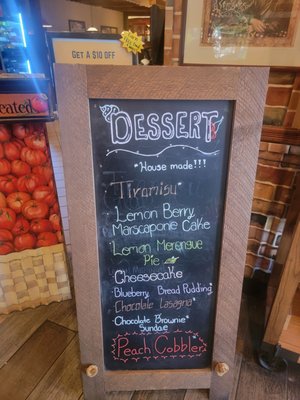 GET A
$10 OFF
eated
DESSERT
*House made!!!
Tiramisu*
Lemon Berry
Marscapone Cake
Lemon Merengue
Pie
Cheesecake
Blueberry Bread Pudding*
Chocolate Lasagna*
Chocolate Brownie*
Sundae
Peach Cobbler